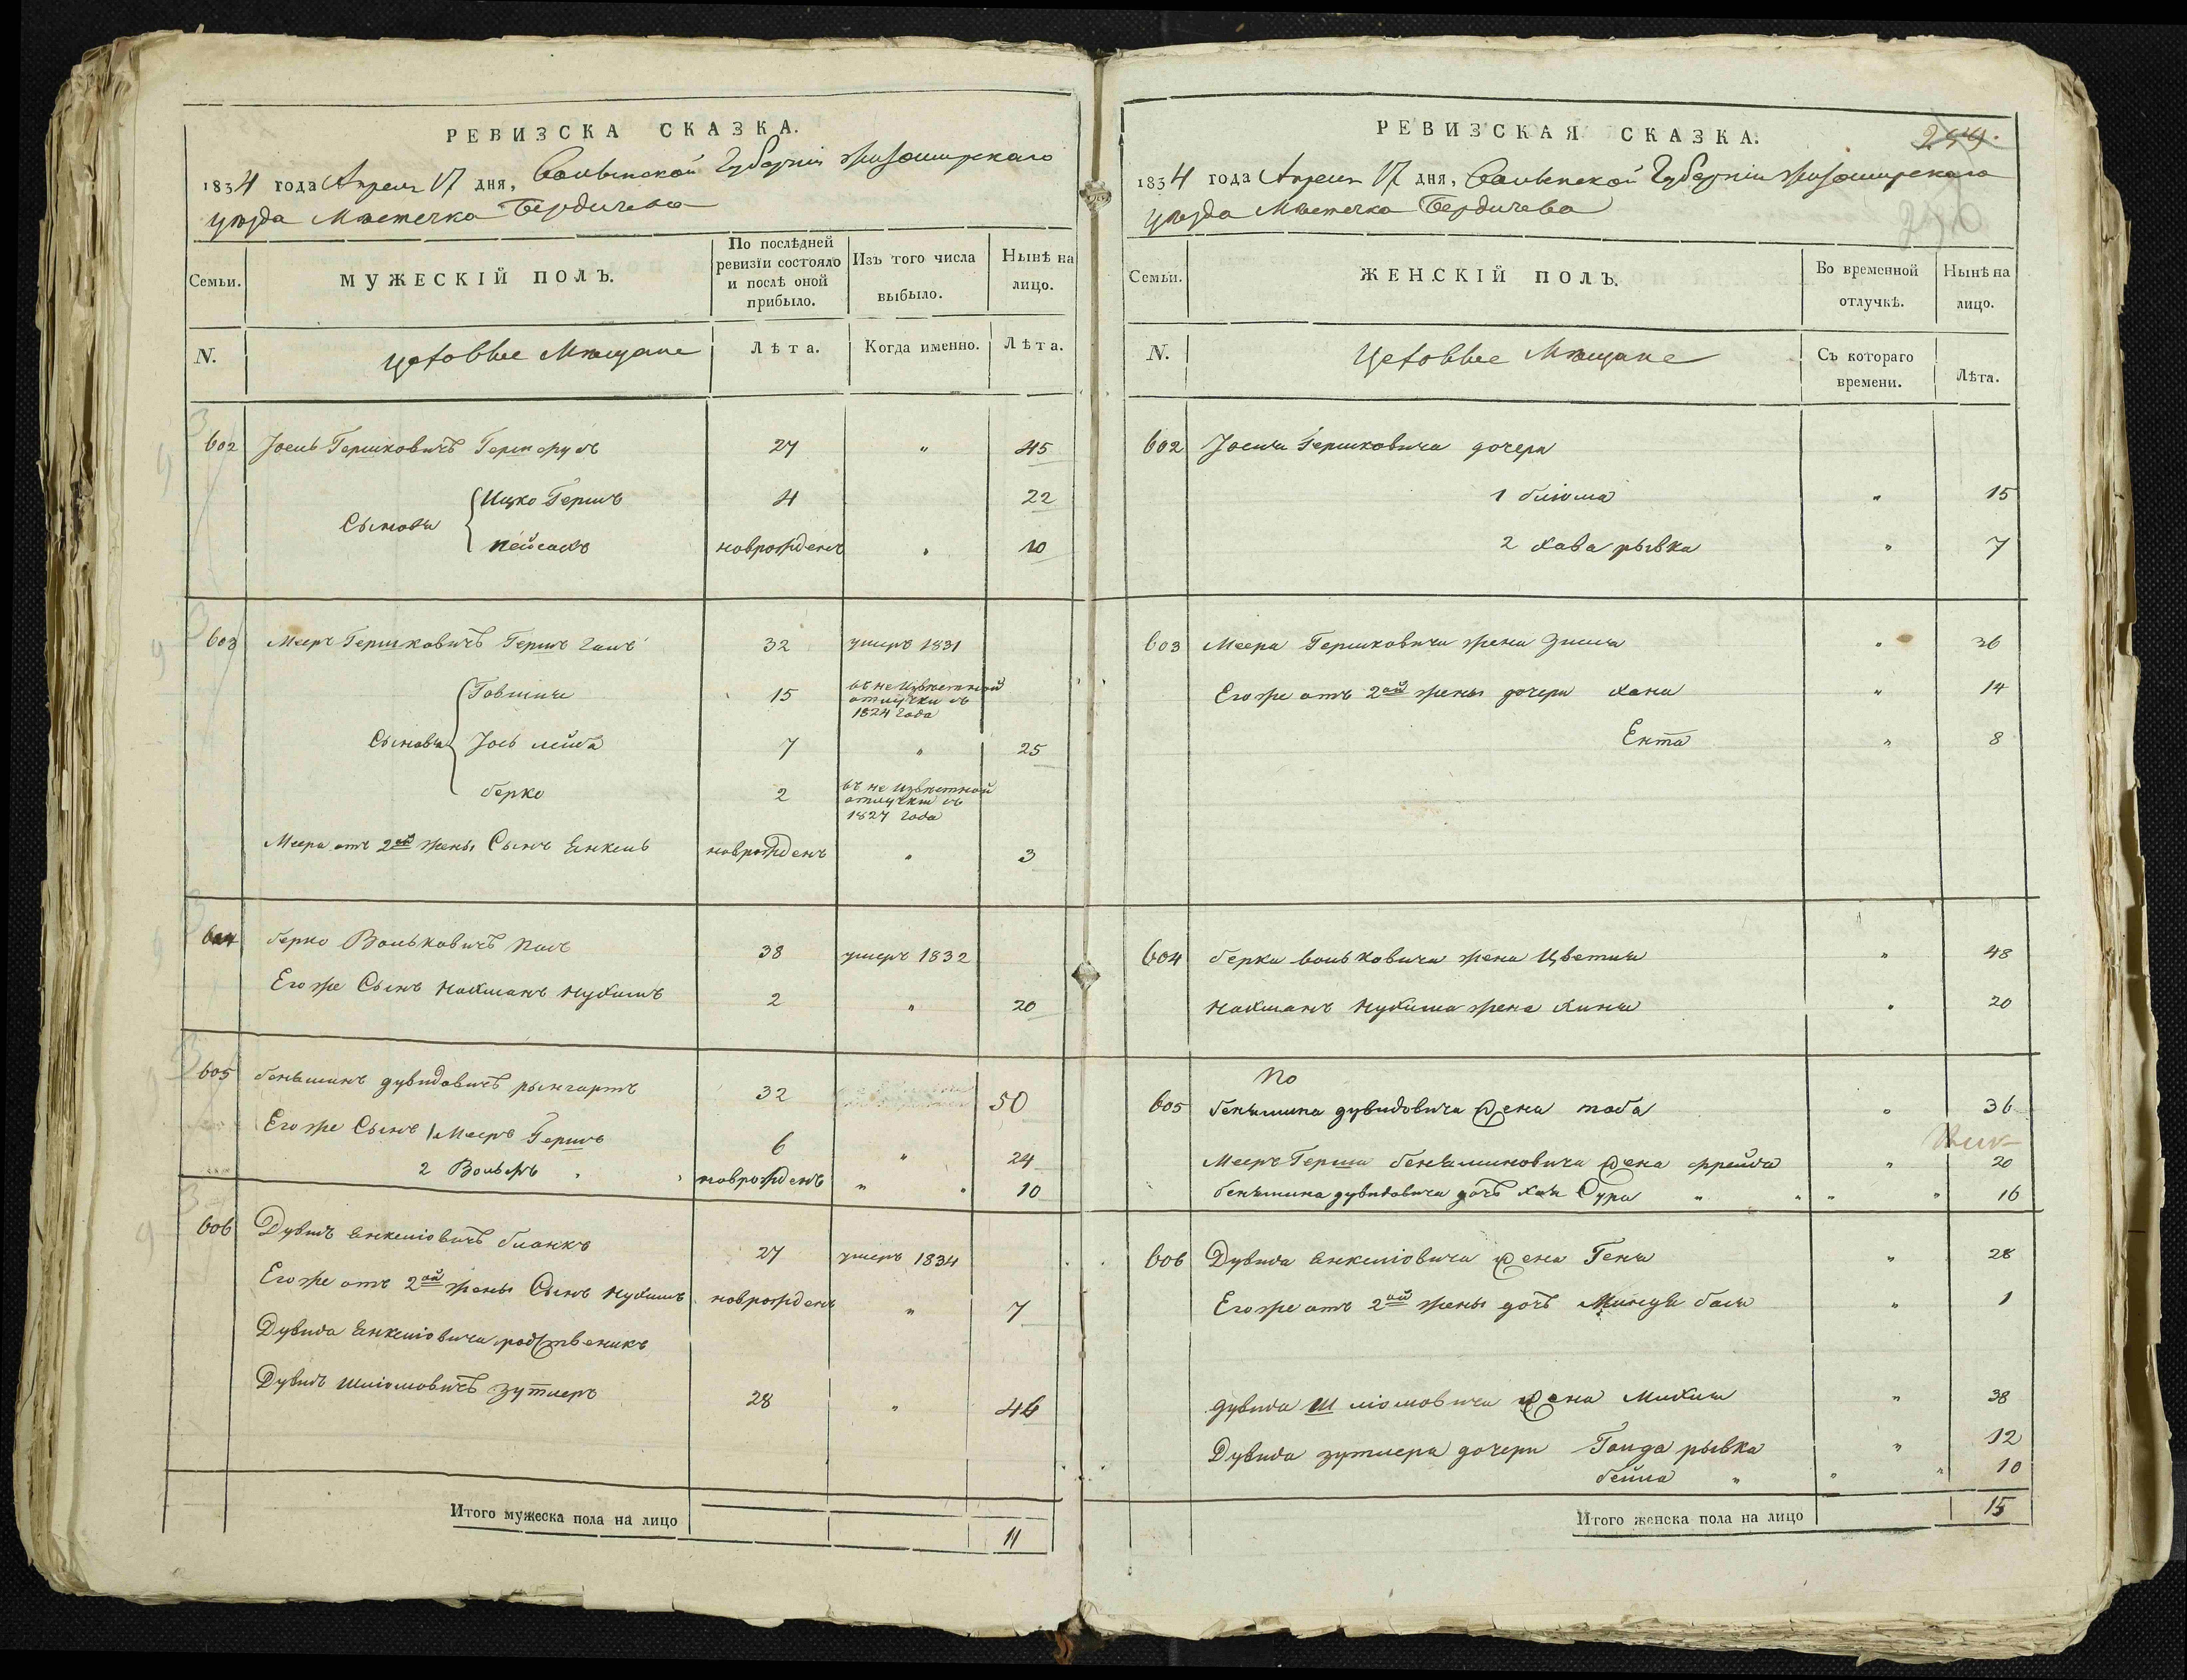 РЕВИЗСКА СКАЗКА.
1834 года Апреля 17 дня, Волынской Губерніи Житомирскаго
уѣзда Мѣстечка Бердичева
Семьи.
МУЖЕСКІЙ ПОЛЪ.
По послѣдней ревизіи состояло и послѣ оной прибыло.
Изъ того числа выбыло.
Нынѣ на лицо.
N.
Цеховые Мѣщане
Лѣта.
Когда именно.
Лѣта.
602 Іось Гершковичъ 27 " 45
Сыновья Ицко Гершъ 4 22
Пейсахъ новрожденъ " 10
603 Мееръ Гершковичъ 32 умеръ 1831
Сыновья Товшия 15 въ не извѣстной отлучки съ 1824 года
Іось лейба 7 " 25
берко 2 въ не извѣстной отлучки съ 1827 года
Меера отъ 2ой жены Сынъ Янкель новрожденъ " 3
604 берко Вольковичъ 38 умеръ 1832
Его же Сынъ Нахманъ Нухимъ 2 " 20
605 беньминъ дувидовичъ рынгартъ 32 50
Его же Сынъ 1 Мееръ Гершъ 6 " 24
2 Вольфъ " новрожденъ " " 10
606 Дувидъ Янкеліовичъ бланкъ 27 умеръ 1834
Его же отъ 2ой жены Сынъ Нухимъ новрожденъ " 7
Дувида Янкеліовича родственикъ
Дувидъ Шліомовичъ зутлеръ 28 " 46
Итого мужеска пола на лицо 11
РЕВИЗСКАЯ СКАЗКА.
244.
240
1834 года Апреля 17 дня, Волынской Губерніи Житомирскаго
уѣзда Мѣстечка Бердичева
Семьи.
ЖЕНСКІЙ ПОЛЪ.
Во временной отлучкѣ.
Нынѣ на лицо.
N.
Цеховые Мѣщане
Съ котораго времени.
Лѣта.
602 Іося Гершковича дочери
1 блюма " 15
2 Хава рывка " 7
603 Меера Гершковича жена Зисля " 36
Его же отъ 2ой жены дочери Хана " 14
Ента " 8
604 берка вольковича жена Цветля " 48
Нахманъ Нухима жена Хиня " 20
605 беньмина дувидовича жена тоба " 36
Мееръ Герша беньминовича жена фрейда " 20
беньмина дувидовича дочь хая Сура " " " " 16
606 Дувида Янкеліовича жена Геня " 28
Его же отъ 2ой жены дочь Минця бася " 1
дувида Шліомовича жена Михля " 38
Дувида зутлера дочери Голда рывка " 12
бейла " " " 10
Итого женска пола на лицо 15